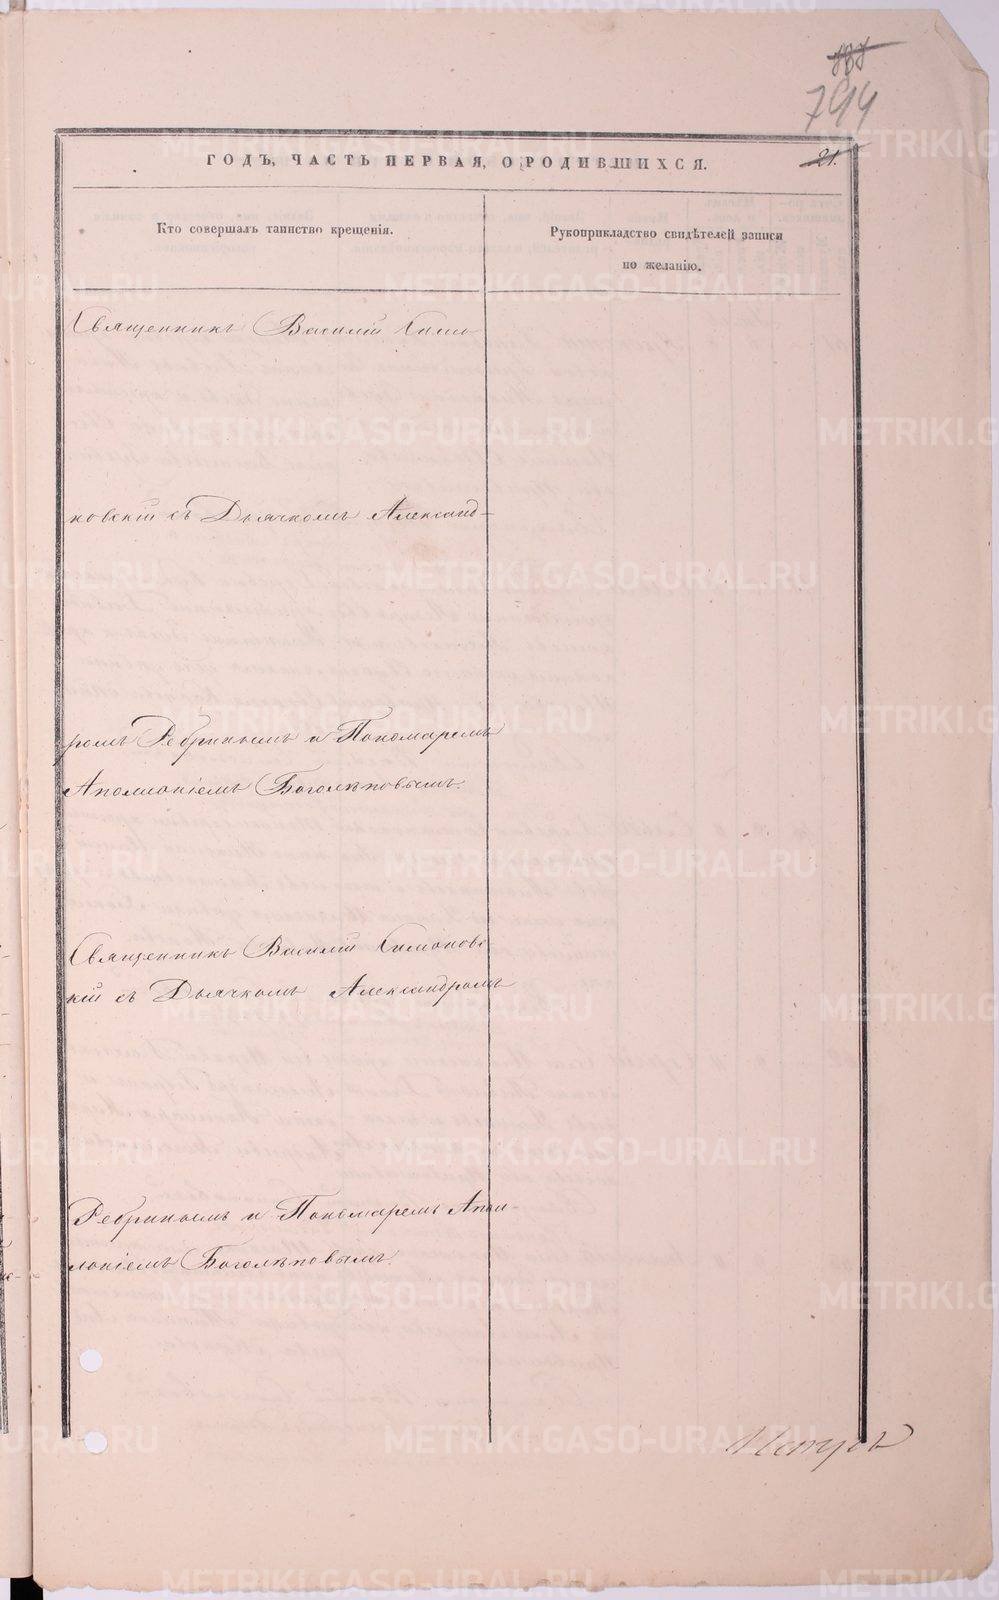 794
ГОДЪ, ЧАСТЬ ПЕРВАЯ, О РОДИВШИХСЯ.
21.
Кто совершалъ таинство крещенія.
Рукоприкладство свидѣтелей записи
по желанію.
Священникъ Василій Симо
новскій съ Дьячкомъ Александ-
ромъ Ребринымъ и Пономаремъ
Аполлоніемъ Боголѣповымъ.
Священникъ Василій Симоновс
кій съ Дьячкомъ Александромъ
Ребринымъ и Пономаремъ Апол-
лоніемъ Боголѣповымъ.
METRIKI.GASO-URAL.RU